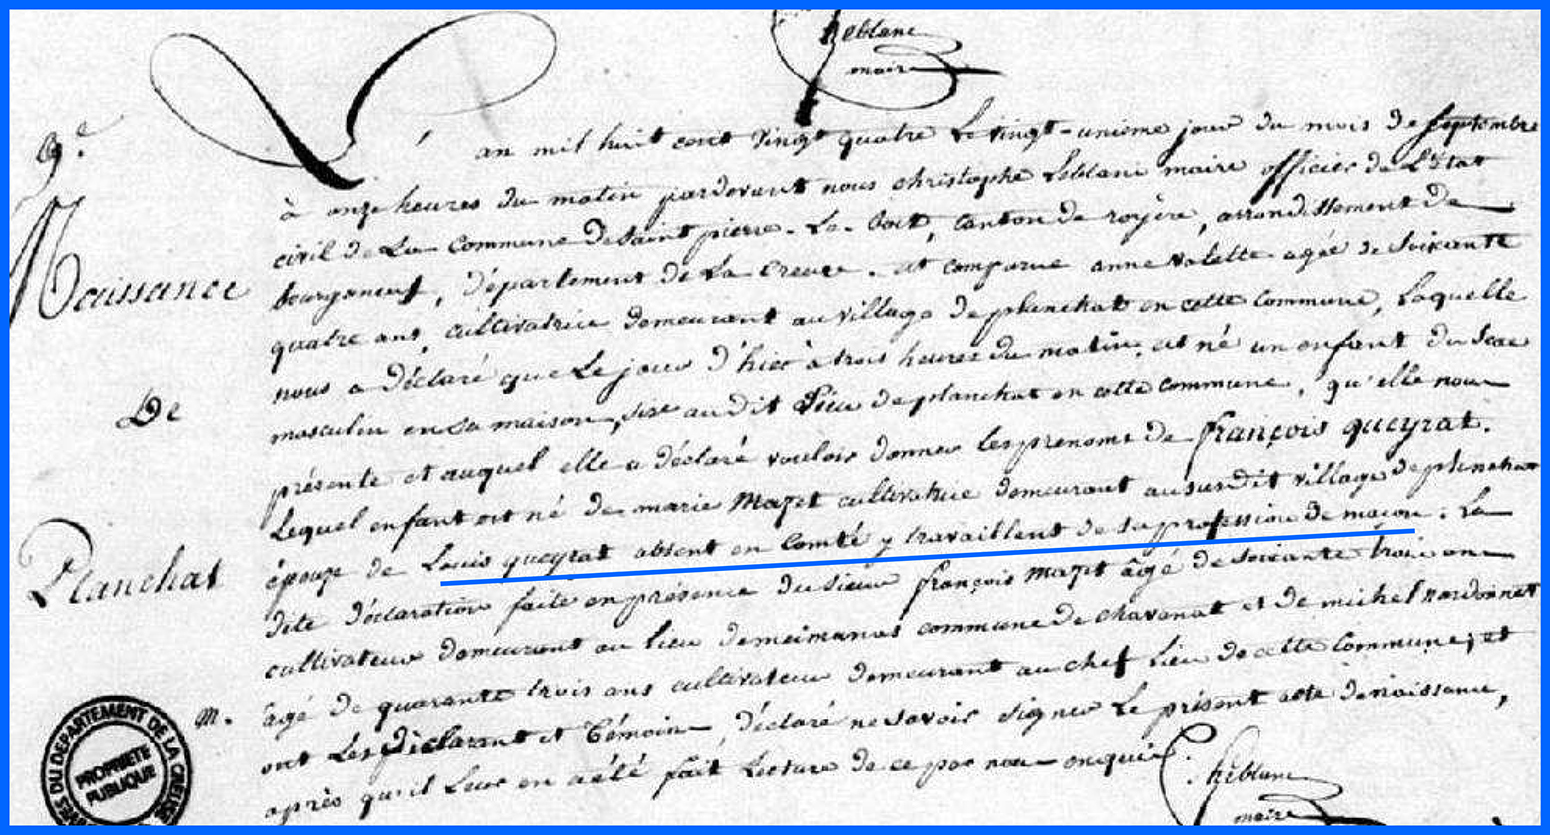 Cheblanc
maire
9.e
Naissance
De
Planchat
m.
L'an mil huit cent vingt quatre Le vingt-unieme jour du mois de septembre
à onze heures du matin pardevant nous christophe Leblanc maire officier de L'Etat
civil de La Commune de Saint pierre-Le-Bost, canton de royère, arrondissement de
bourganeuf, département de La Creuse. est comparue anne valette agée de Soixante
quatre ans, cultivatrice demeurant au village de planchat en cette Commune, Laquelle
nous a déclaré que Le jour d'hier à trois heures du matin, est né un enfant du Sexe
masculin en Sa maison, sise audit Lieu de planchat en cette commune, qu'elle nous
présente et auquel elle a déclaré vouloir donner Les prenoms de françois queyrat.
Lequel enfant est né de marie Mazet cultivatrice demeurant au susdit village de planchat
épouze de Louis queyrat absent en Comté y travaillent de sa profession de maçon. La
dite déclaration faite en présence du Sieur françois Mazet âgé de soixante trois ans
cultivateur demeurant au Lieu de commune de chavanat et de michel
âgé de quarante trois ans cultivateur demeurant au chef Lieu de cette Commune; et
ont Les déclarant et Témoins, déclaré ne Savoir signer Le présent acte de naissance,
après qu'il Leur en a été fait Lecture de ce par nous enquis.
Cheblanc
maire
ARCHIVES DU DÉPARTEMENT DE LA CREUSE
PROPRIÉTÉ
PUBLIQUE